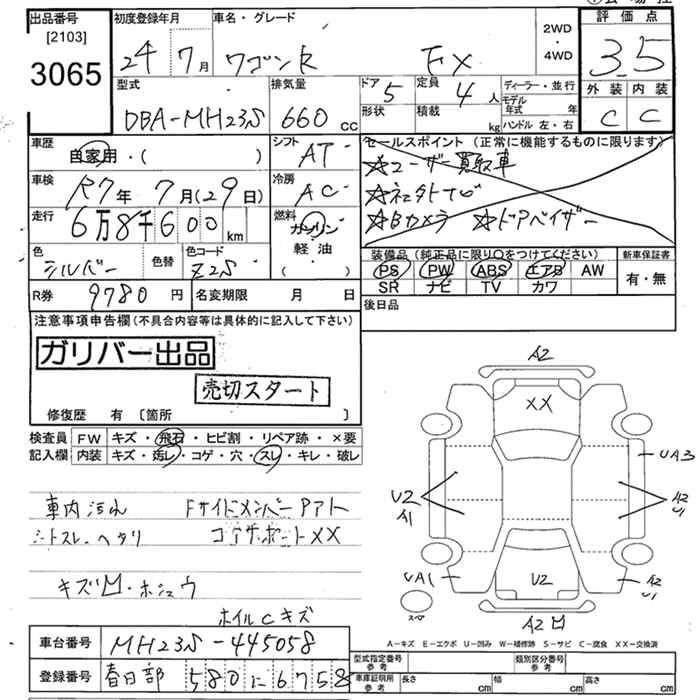 出品番号 初度登録年月 車名・グレード 評価点
[2103] 24 7月 ワゴンR FX 2WD・4WD 3.5
3065
型式 排気量 ドア 5 定員 4人 ディーラー・並行 外装 内装
DBA-MH23S 660cc 形状 積載 kg モデル年式 年 C C
ハンドル 左・右
車歴 自家用・( ) シフト AT セールスポイント (正常に機能するものに限ります)
車検 R7年 7月(29日) 冷房 AC ☆ユーザー買取車
☆ネエタトナビ
走行 6万8千600km 燃料 ガソリン 軽油 ( ・ ) ☆Bカメラ ☆ドアバイザー
色 シルバー 色替 色コード Z2S 装備品 (純正品に限り○をつけてください) 新車保証書
PS PW ABS エアB AW 有・無
SR ナビ TV カワ
R券 9780円 名変期限 月 日 後日品
注意事項申告欄 (不具合内容等は具体的に記入して下さい)
ガリバー出品
売切スタート
修復歴 有 [箇所 ]
検査員 FW キズ・飛石・ヒビ割・リペア跡・×要
記入欄 内装 キズ・汚レ・コゲ・穴・スレ・キレ・破レ
A2
XX
UA3
U2 A1
A2 U1
UA1
U2
A2 U1
スペア
A2
車内汚れ FサイドメンバーPアト
シートスレ・ヘタリ コアサポートXX
キズ凹・ホシュウ
ホイルCキズ
A-キズ E-エクボ U-凹み W-補修跡 S-サビ C-腐食 XX-交換済
車台番号 MH23S-445058 型式指定番号 参考 類別区分番号 参考
登録番号 春日部 580 に 6758 車庫証明用 参考 長さ cm 幅 cm 高さ cm